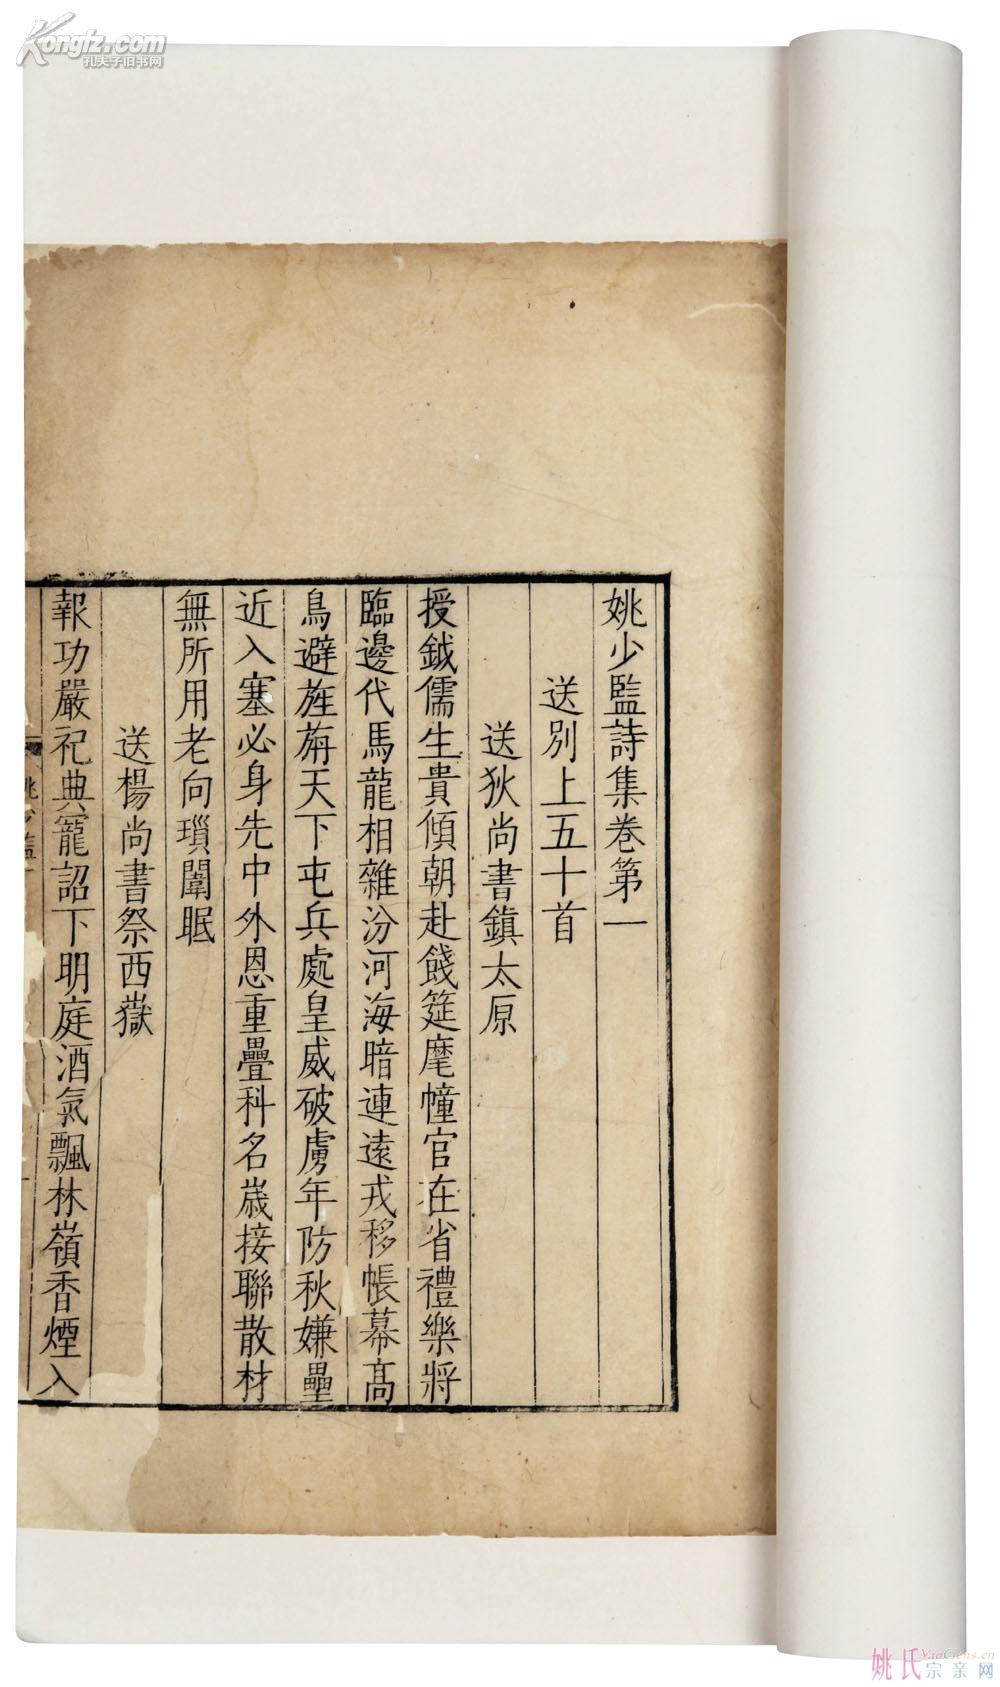 Kongfz.com
孔夫子旧书网
姚少監詩集卷第一
送別上五十首
送狄尚書鎮太原
授鉞儒生貴傾朝赴餞筵麾幢官在省禮樂將
臨邊代馬龍相雜汾河海暗連遠戎移帳幕高
鳥避旌旃天下屯兵處皇威破虜年防秋嫌壘
近入塞必身先中外恩重疊科名歲接聯散材
無所用老向瑣闈眠
送楊尚書祭西嶽
報功嚴祀典寵詔下明庭酒氣飄林嶺香煙入
姚少監
姚氏宗亲网
YaoGens.cn